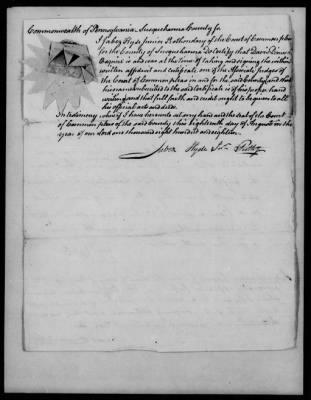 Commonwealth of Pennsylvania Susquehanna County ss.
I Jabez Hyde junior Prothonotary of the Court of Common pleas
for the County of Susquehanna Do certify that Davis Dimock
Esquire is and was at the time of taking and signing the within
written affidavit and certificate one of the Associate judges of
the Court of Common pleas in and for the said County, and that
his name subscribed to the said certificate is of his proper hand
writing and that full faith and credit ought to be given to all
his official acts and deeds.
In testimony whereof I have hereunto set my hand and the seal of the Court
of Common pleas of the said County this Eighteenth day of August in the
year of our Lord one thousand eight hundred and eighteen
Jabez Hyde Jur. Prothy